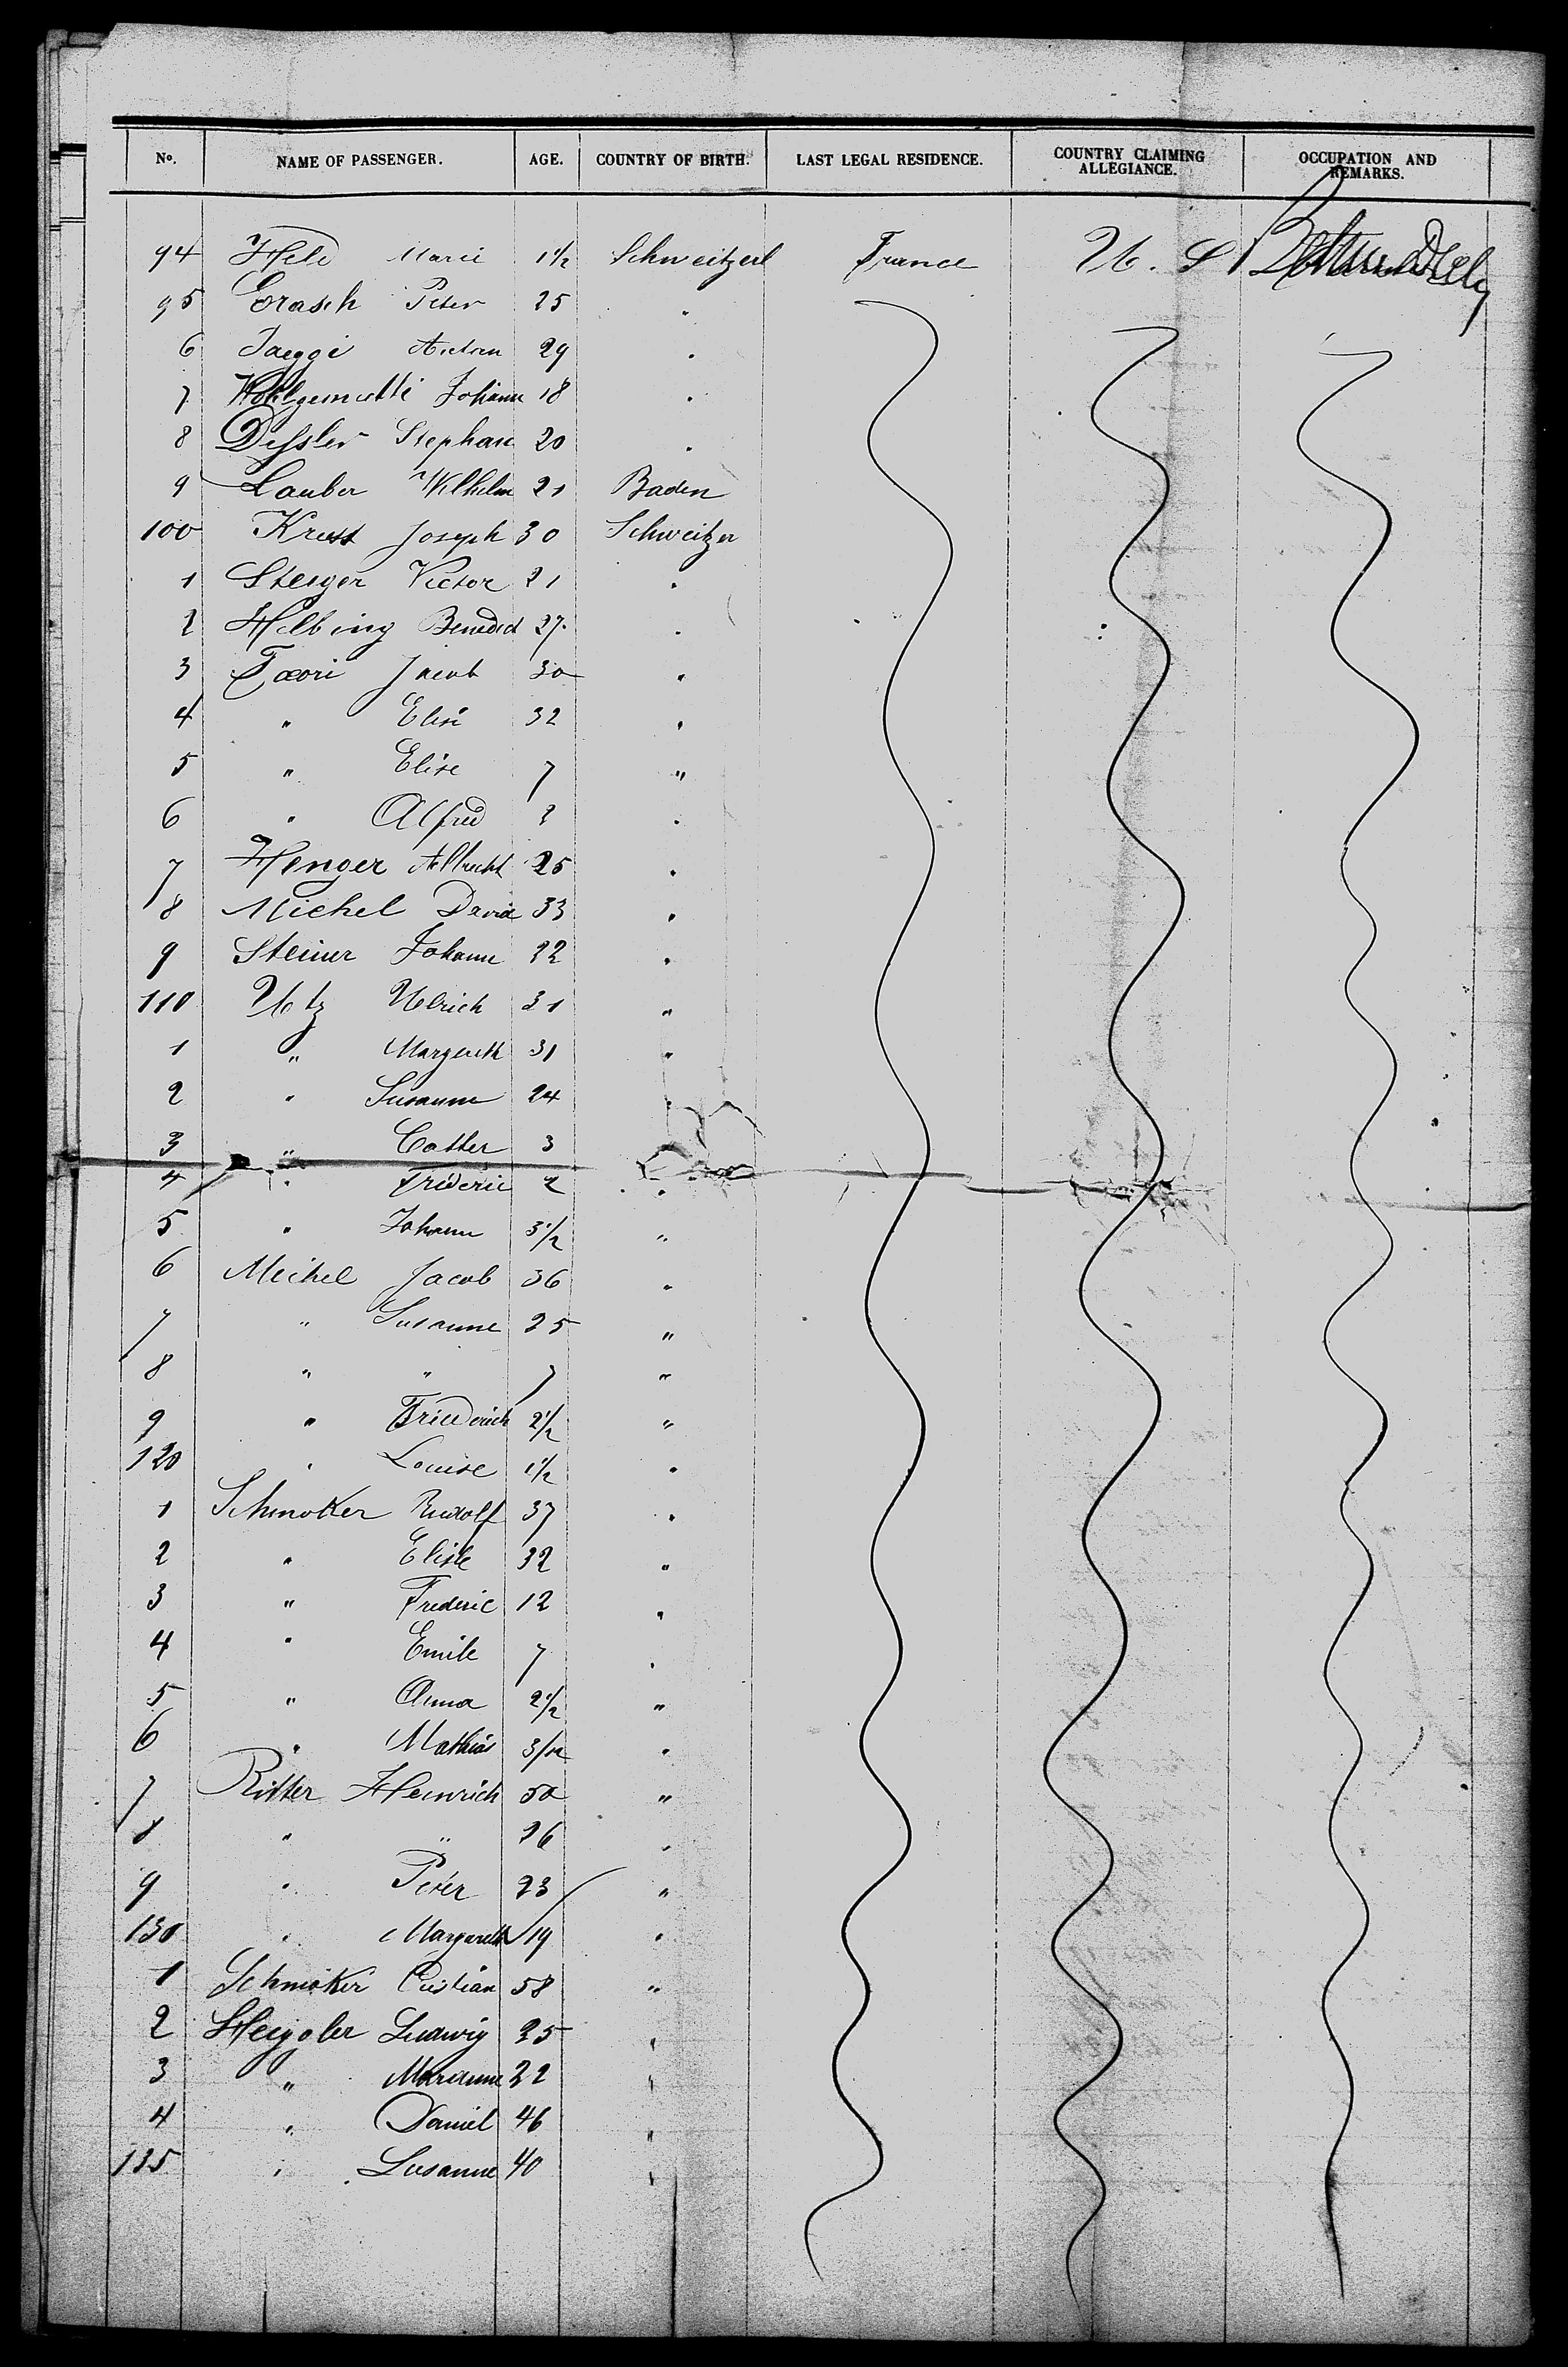 No. NAME OF PASSENGER. AGE. COUNTRY OF BIRTH. LAST LEGAL RESIDENCE. COUNTRY CLAIMING ALLEGIANCE. OCCUPATION AND REMARKS.
94 Held Marie 1½ Schweitzerl France U. S
95 Grasch Peter 25 "
6 Jaeggi 29 "
7 Wohlgemutti Johann 18 "
8 Dissler Stephan 20 "
9 Lauber Wilhelm 21 Baden
100 Krust Joseph 30 Schweitzer
1 Steiger Victor 21 "
2 Helbing Benedict 27 "
3 Jacob 30 "
4 " Elise 32 "
5 " Elise 7 "
6 " Alfred 3 "
7 Henger Albrecht 25 "
8 Michel David 33 "
9 Steiner Johann 22 "
110 Utz Ulrich 31 "
1 " Margerith 31 "
2 " Susanne 24 "
3 " 3
4 " Frideric 2 "
5 " Johann 3½ "
6 Michel Jacob 36 "
7 " Susanne 25 "
8 " " 7 "
9 " Friederich 2½ "
120 " Louise 1½ "
1 Schmoker Rudolf 37 "
2 " Elise 32 "
3 " Frederic 12 "
4 " Emile 7 "
5 " Anna 2½ "
6 " Mathias 3/12 "
7 Ritter Heinrich 50 "
8 " " 26 "
9 " Peter 23 "
130 " Margareth 19 "
1 Schmoker Cristian 58 "
2 Ludwig 25 "
3 " Marianne 22 "
4 " Daniel 46 "
135 " Susanne 40 "